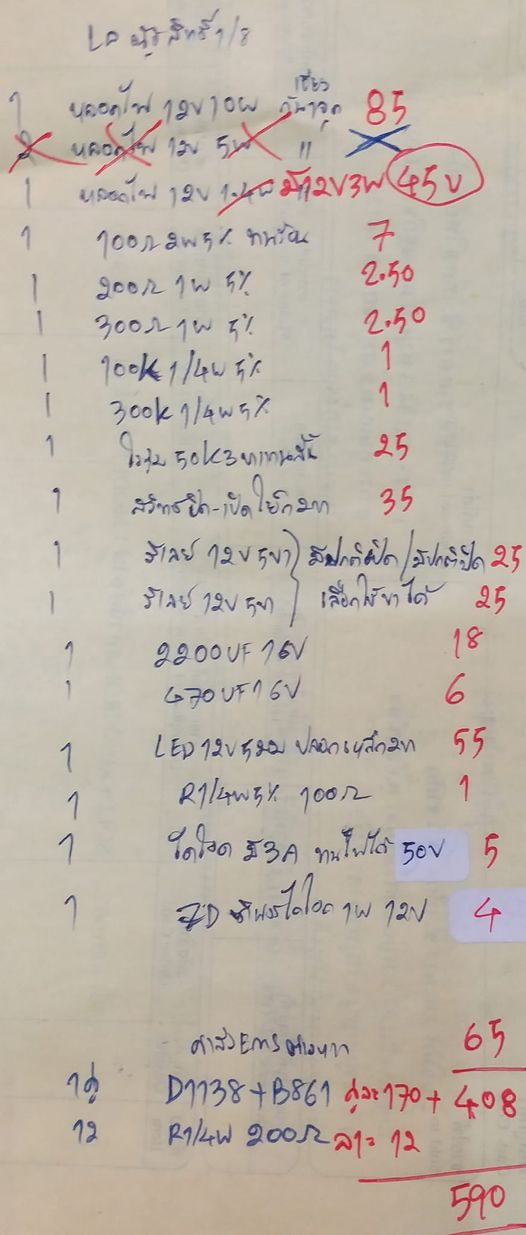 1 หลอดไฟ 12V 10W 85
2 หลอดไฟ 12V 5W "
1 หลอดไฟ 12V 1.4W มี 12V 3W 45 บ
1 100Ω 2W 5% ทนร้อน 7
1 200Ω 1W 5% 2.50
1 300Ω 1W 5% 2.50
1 100K 1/4W 5% 1
1 300K 1/4W 5% 1
1 50K 3 25
1 สวิทซ์ปิด-เปิด 35
1 รีเลย์ 12V 5ขา มีปกติเปิด/มีปกติปิด 25
1 รีเลย์ 12V 5ขา เลือกใช้ขาได้ 25
1 2200UF 16V 18
1 470UF 16V 6
1 LED 12V 5มม ปลอกเหล็ก 55
1 R1/4W 5% 100Ω 1
1 ไดโอด มี 3A ทนไฟได้ 50V 5
1 ZD ซีเนอร์ไดโอด 1W 12V 4
ค่าส่ง EMS 65
1คู่ D1138+B861 คู่ละ 170 + 408
12 R1/4W 200Ω ล1= 12
590